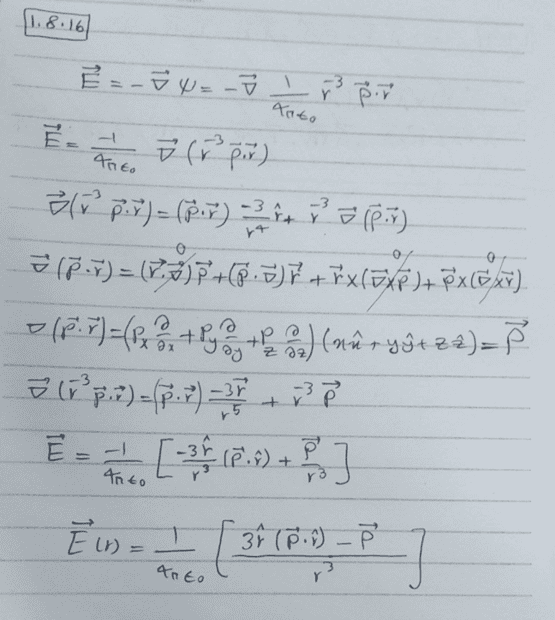 1.8.16
\vec{E} = -\vec{∇} ψ = -\vec{∇} \frac{1}{4πε₀} r^{-3} \vec{p}·\vec{r}
\vec{E} = \frac{-1}{4πε₀} \vec{∇} (r^{-3} \vec{p}·\vec{r})
\vec{∇}(r^{-3} \vec{p}·\vec{r}) = (\vec{p}·\vec{r}) \frac{-3}{r^4} \hat{r} + r^{-3} \vec{∇} (\vec{p}·\vec{r})
\vec{∇} (\vec{p}·\vec{r}) = \cancel{(\vec{r}·\vec{∇}) \vec{p}}^0 + (\vec{p}·\vec{∇}) \vec{r} + \cancel{\vec{r}×(\vec{∇}×\vec{p})}^0 + \cancel{\vec{p}×(\vec{∇}×\vec{r})}^0
∇ (\vec{p}·\vec{r}) = (p_x \frac{∂}{∂x} + p_y \frac{∂}{∂y} + p_z \frac{∂}{∂z}) (x\hat{x} + y\hat{y} + z\hat{z}) = \vec{p}
\vec{∇} (r^{-3} \vec{p}·\vec{r}) = (\vec{p}·\vec{r}) \frac{-3\vec{r}}{r^5} + r^{-3} \vec{p}
\vec{E} = \frac{-1}{4πε₀} [ \frac{-3\hat{r}}{r^3} (\vec{p}·\hat{r}) + \frac{\vec{p}}{r^3} ]
\vec{E}(r) = \frac{1}{4πε₀} [ \frac{3\hat{r} (\vec{p}·\hat{r}) - \vec{p}}{r^3} ]